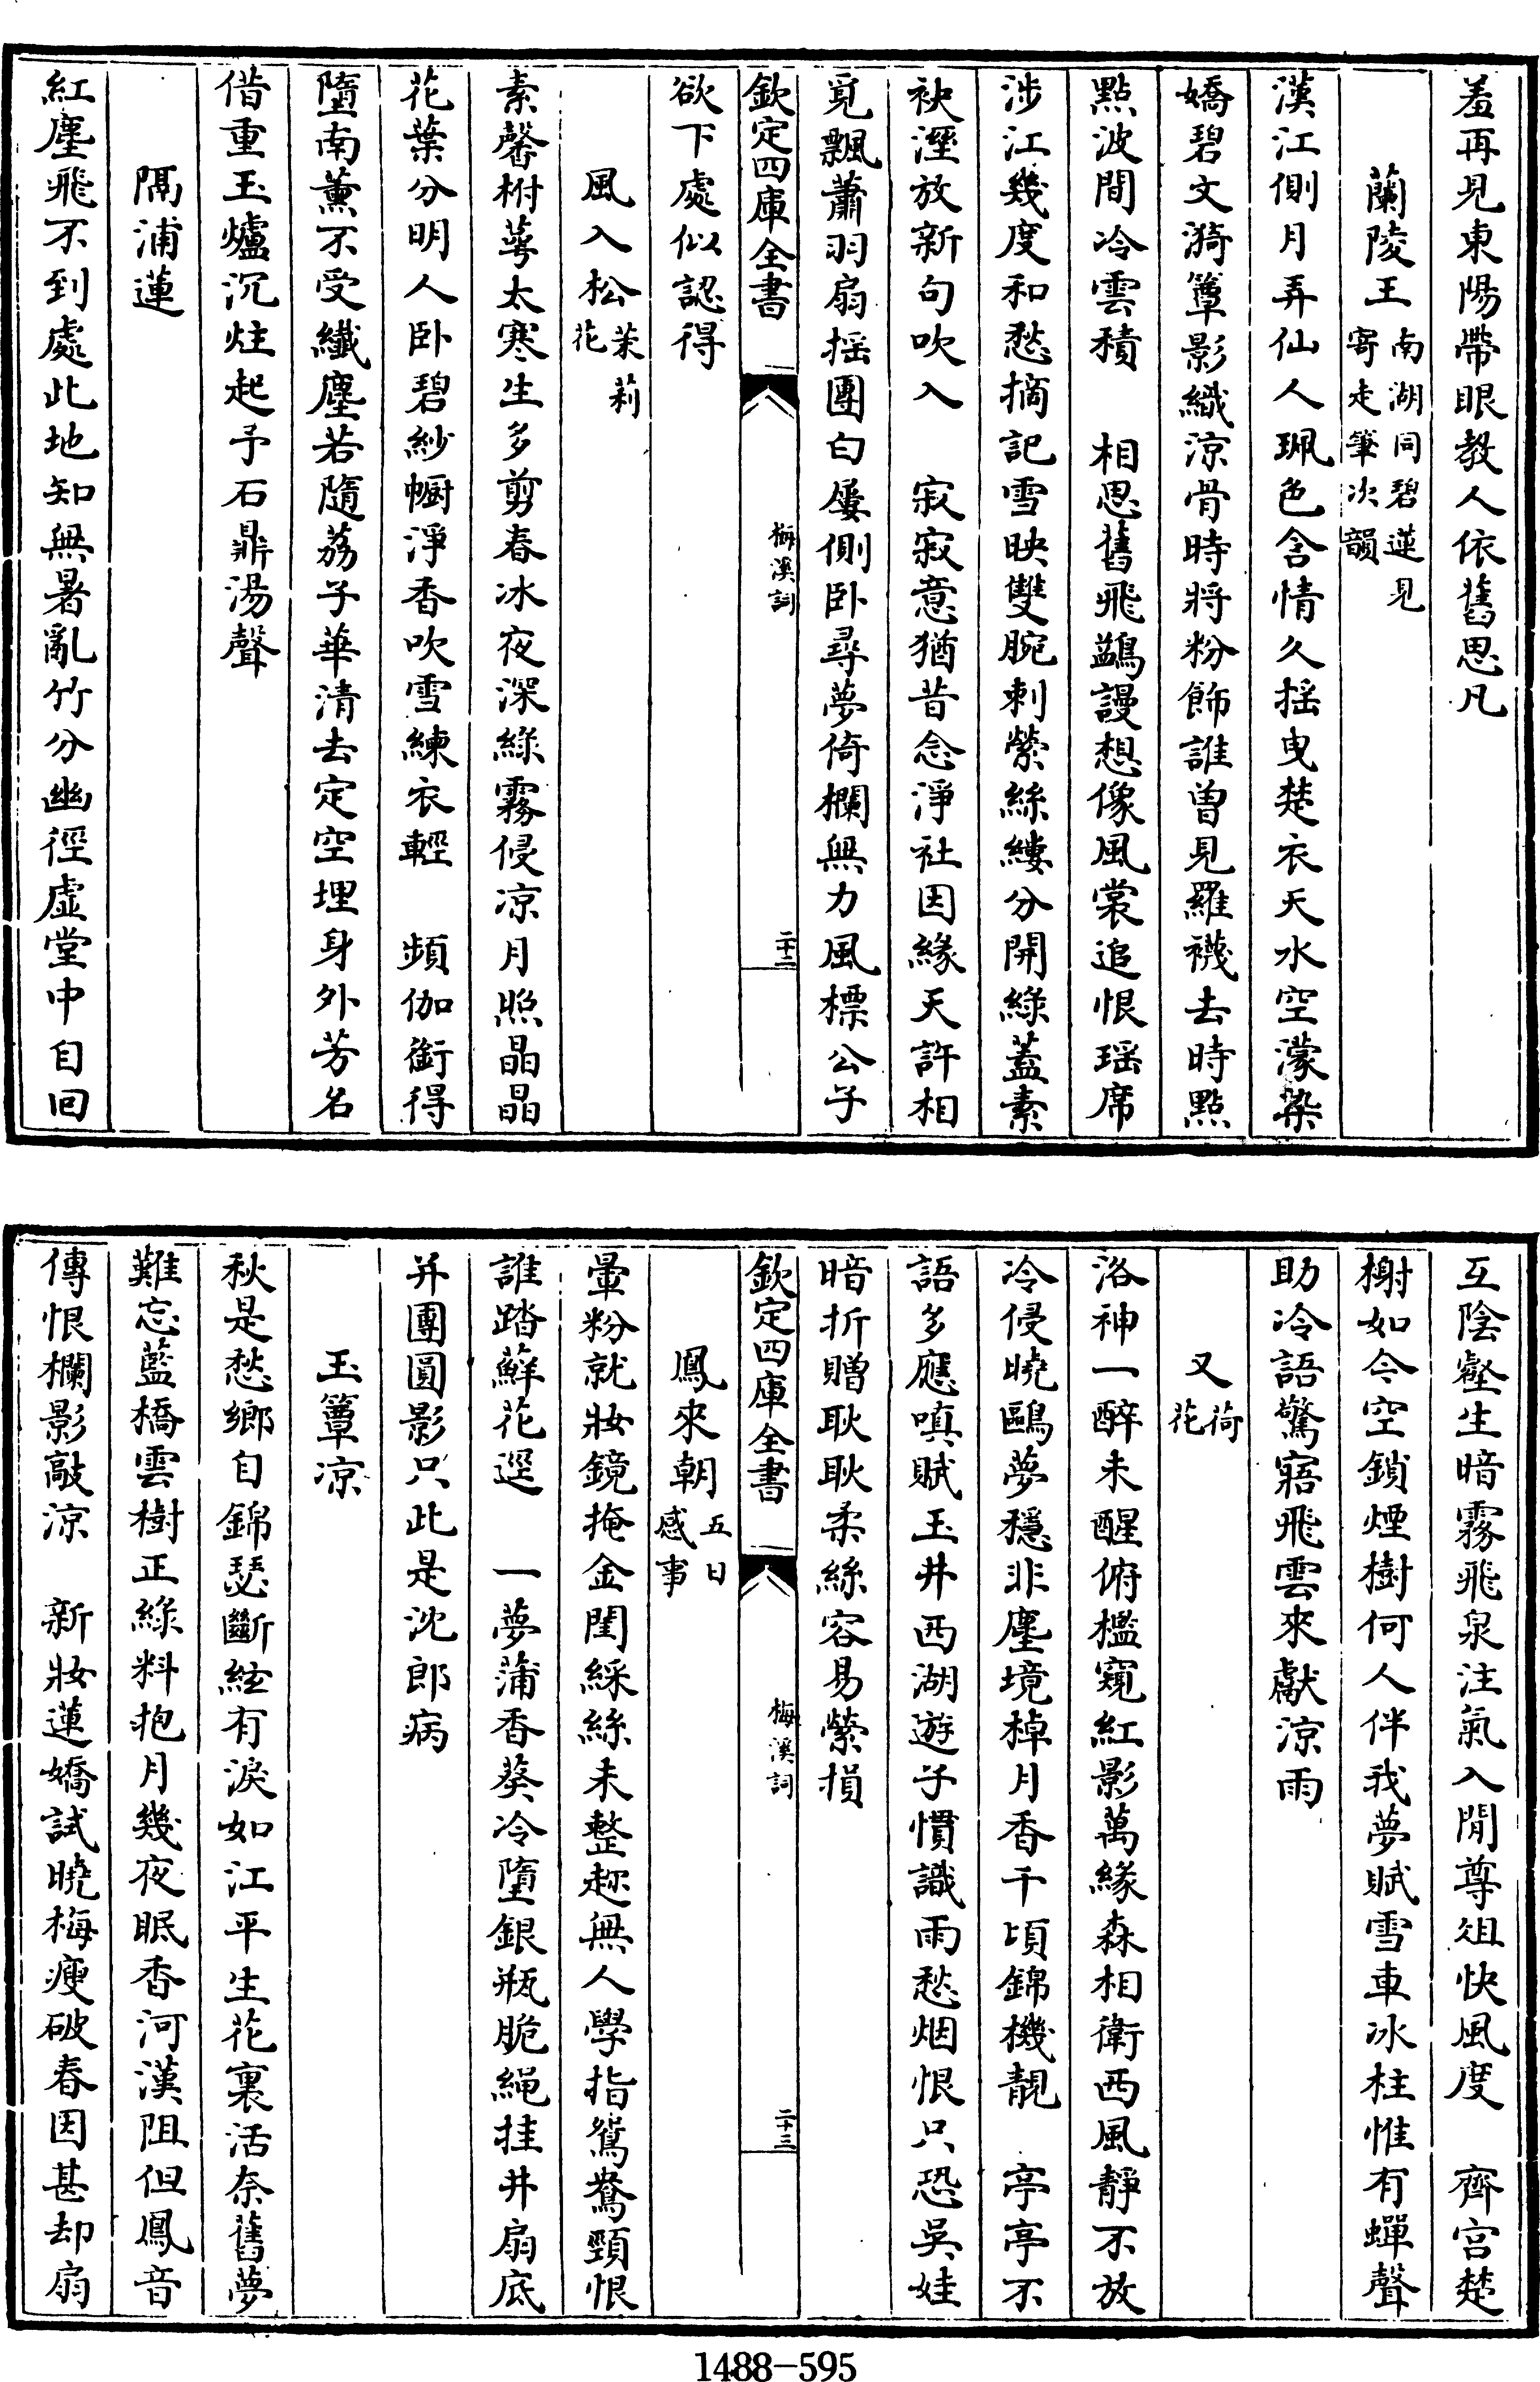 羞再見東陽帶眼教人依舊思凡
蘭陵王南湖同碧蓮見寄走筆次韻
漢江側月弄仙人珮色含情久揺曳楚衣天水空濛染
嬌碧文漪簟影織涼骨時將粉飾誰曽見羅襪去時點
點波間冷雲積　相思舊飛鷁謾想像風裳追恨瑶席
涉江幾度和愁摘記雪映雙腕刺縈絲縷分開綠蓋素
袂溼放新句吹入　寂寂意猶昔念淨社因緣天許相
覓飄蕭羽扇揺團白屢側卧尋夢倚欄無力風標公子
欽定四庫全書　梅溪詞　二十二
欲下處似認得
風入松茉莉花
素馨柎萼太寒生多剪春冰夜深綠霧侵凉月照晶晶
花葉分明人卧碧紗㡡淨香吹雪練衣輕　頻伽銜得
墮南薰不受纎塵若隨荔子華清去定空埋身外芳名
借重玉爐沉炷起予石鼎湯聲
隔浦蓮
紅塵飛不到處此地知無暑亂竹分幽徑虛堂中自回
互陰壑生暗霧飛泉注氣入閒尊俎快風度　齊宫楚
榭如今空鎖煙樹何人伴我夢賦雪車冰柱惟有蟬聲
助冷語驚寤飛雲來獻涼雨
又荷花
洛神一醉未醒俯檻窺紅影萬緣森相衛西風靜不放
冷侵曉鷗夢穩非塵境棹月香千頃錦機靚　亭亭不
語多應嗔賦玉井西湖遊子慣識雨愁烟恨只恐吳娃
暗折贈耿耿柔絲容易縈損
欽定四庫全書　梅溪詞　二十三
鳳來朝五日感事
暈粉就妝鏡掩金閨綵絲未整趂無人學指鴛鴦頸恨
誰踏蘚花逕　一夢蒲香葵冷墮銀瓶脆䋲挂井扇底
并團圓影只此是沈郎病
玉簟凉
秋是愁鄉自錦瑟斷絃有淚如江平生花裏活奈舊夢
難忘藍橋雲樹正綠料抱月幾夜眠香河漢阻但鳳音
傳恨欄影敲涼　新妝蓮嬌試曉梅瘦破春因甚却扇
1488-595